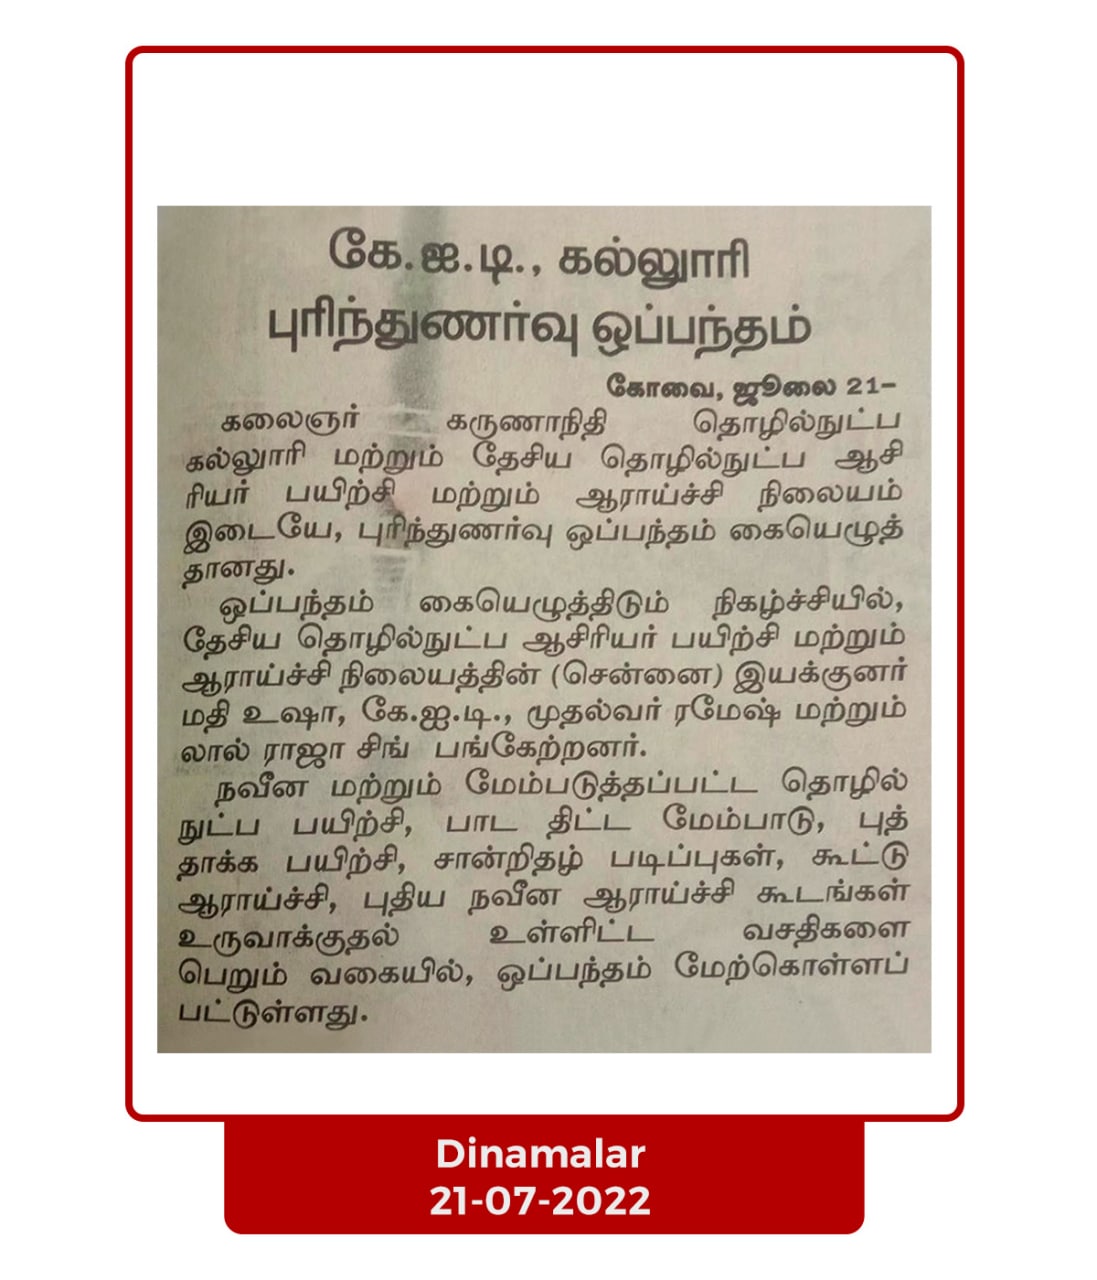 கே.ஐ.டி., கல்லூரி
புரிந்துணர்வு ஒப்பந்தம்
கோவை, ஜூலை 21–
கலைஞர் கருணாநிதி தொழில்நுட்ப
கல்லூரி மற்றும் தேசிய தொழில்நுட்ப ஆசி
ரியர் பயிற்சி மற்றும் ஆராய்ச்சி நிலையம்
இடையே, புரிந்துணர்வு ஒப்பந்தம் கையெழுத்
தானது.
ஒப்பந்தம் கையெழுத்திடும் நிகழ்ச்சியில்,
தேசிய தொழில்நுட்ப ஆசிரியர் பயிற்சி மற்றும்
ஆராய்ச்சி நிலையத்தின் (சென்னை) இயக்குனர்
மதி உஷா, கே.ஐ.டி., முதல்வர் ரமேஷ் மற்றும்
லால் ராஜா சிங் பங்கேற்றனர்.
நவீன மற்றும் மேம்படுத்தப்பட்ட தொழில்
நுட்ப பயிற்சி, பாட திட்ட மேம்பாடு, புத்
தாக்க பயிற்சி, சான்றிதழ் படிப்புகள், கூட்டு
ஆராய்ச்சி, புதிய நவீன ஆராய்ச்சி கூடங்கள்
உருவாக்குதல் உள்ளிட்ட வசதிகளை
பெறும் வகையில், ஒப்பந்தம் மேற்கொள்ளப்
பட்டுள்ளது.
Dinamalar
21-07-2022